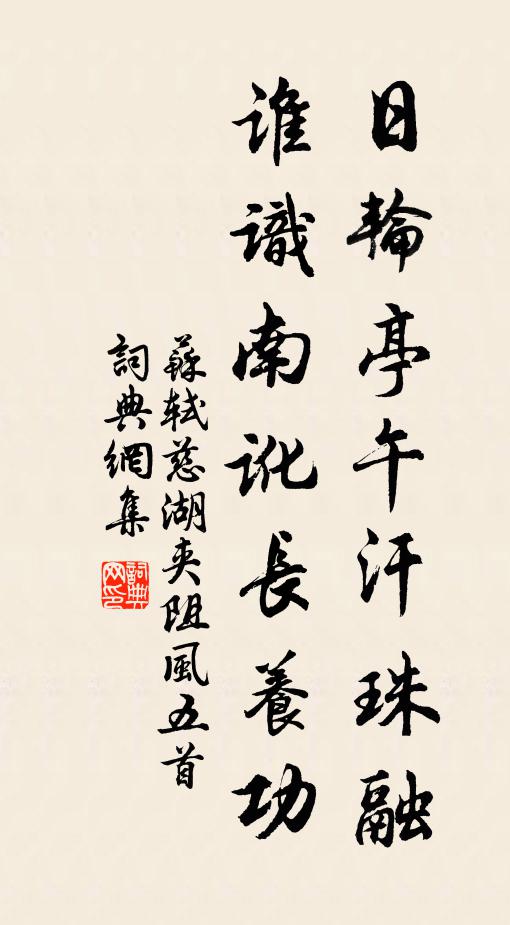 日輪亭午汗珠融
誰識南訛長養功
蘇軾慈湖夾阻風五首
詞典網集
詞典
网印